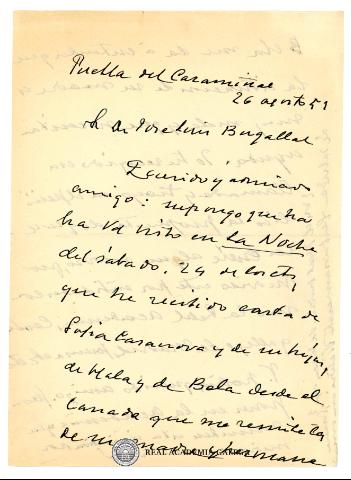 Puebla del Caramiñal
26 agosto 51
Sr D. Jose Luis Bugallal
Querido y admirado
amigo: supongo que ha
ha Vd visto en La Noche
del sábado, 24 de
que he recibido carta de
Sofia Casanova y de su hija,
de Hala y de Bela desde el
Canadá que me remite la
de su madre y hermana
REAL ACADEMIA GALEGA